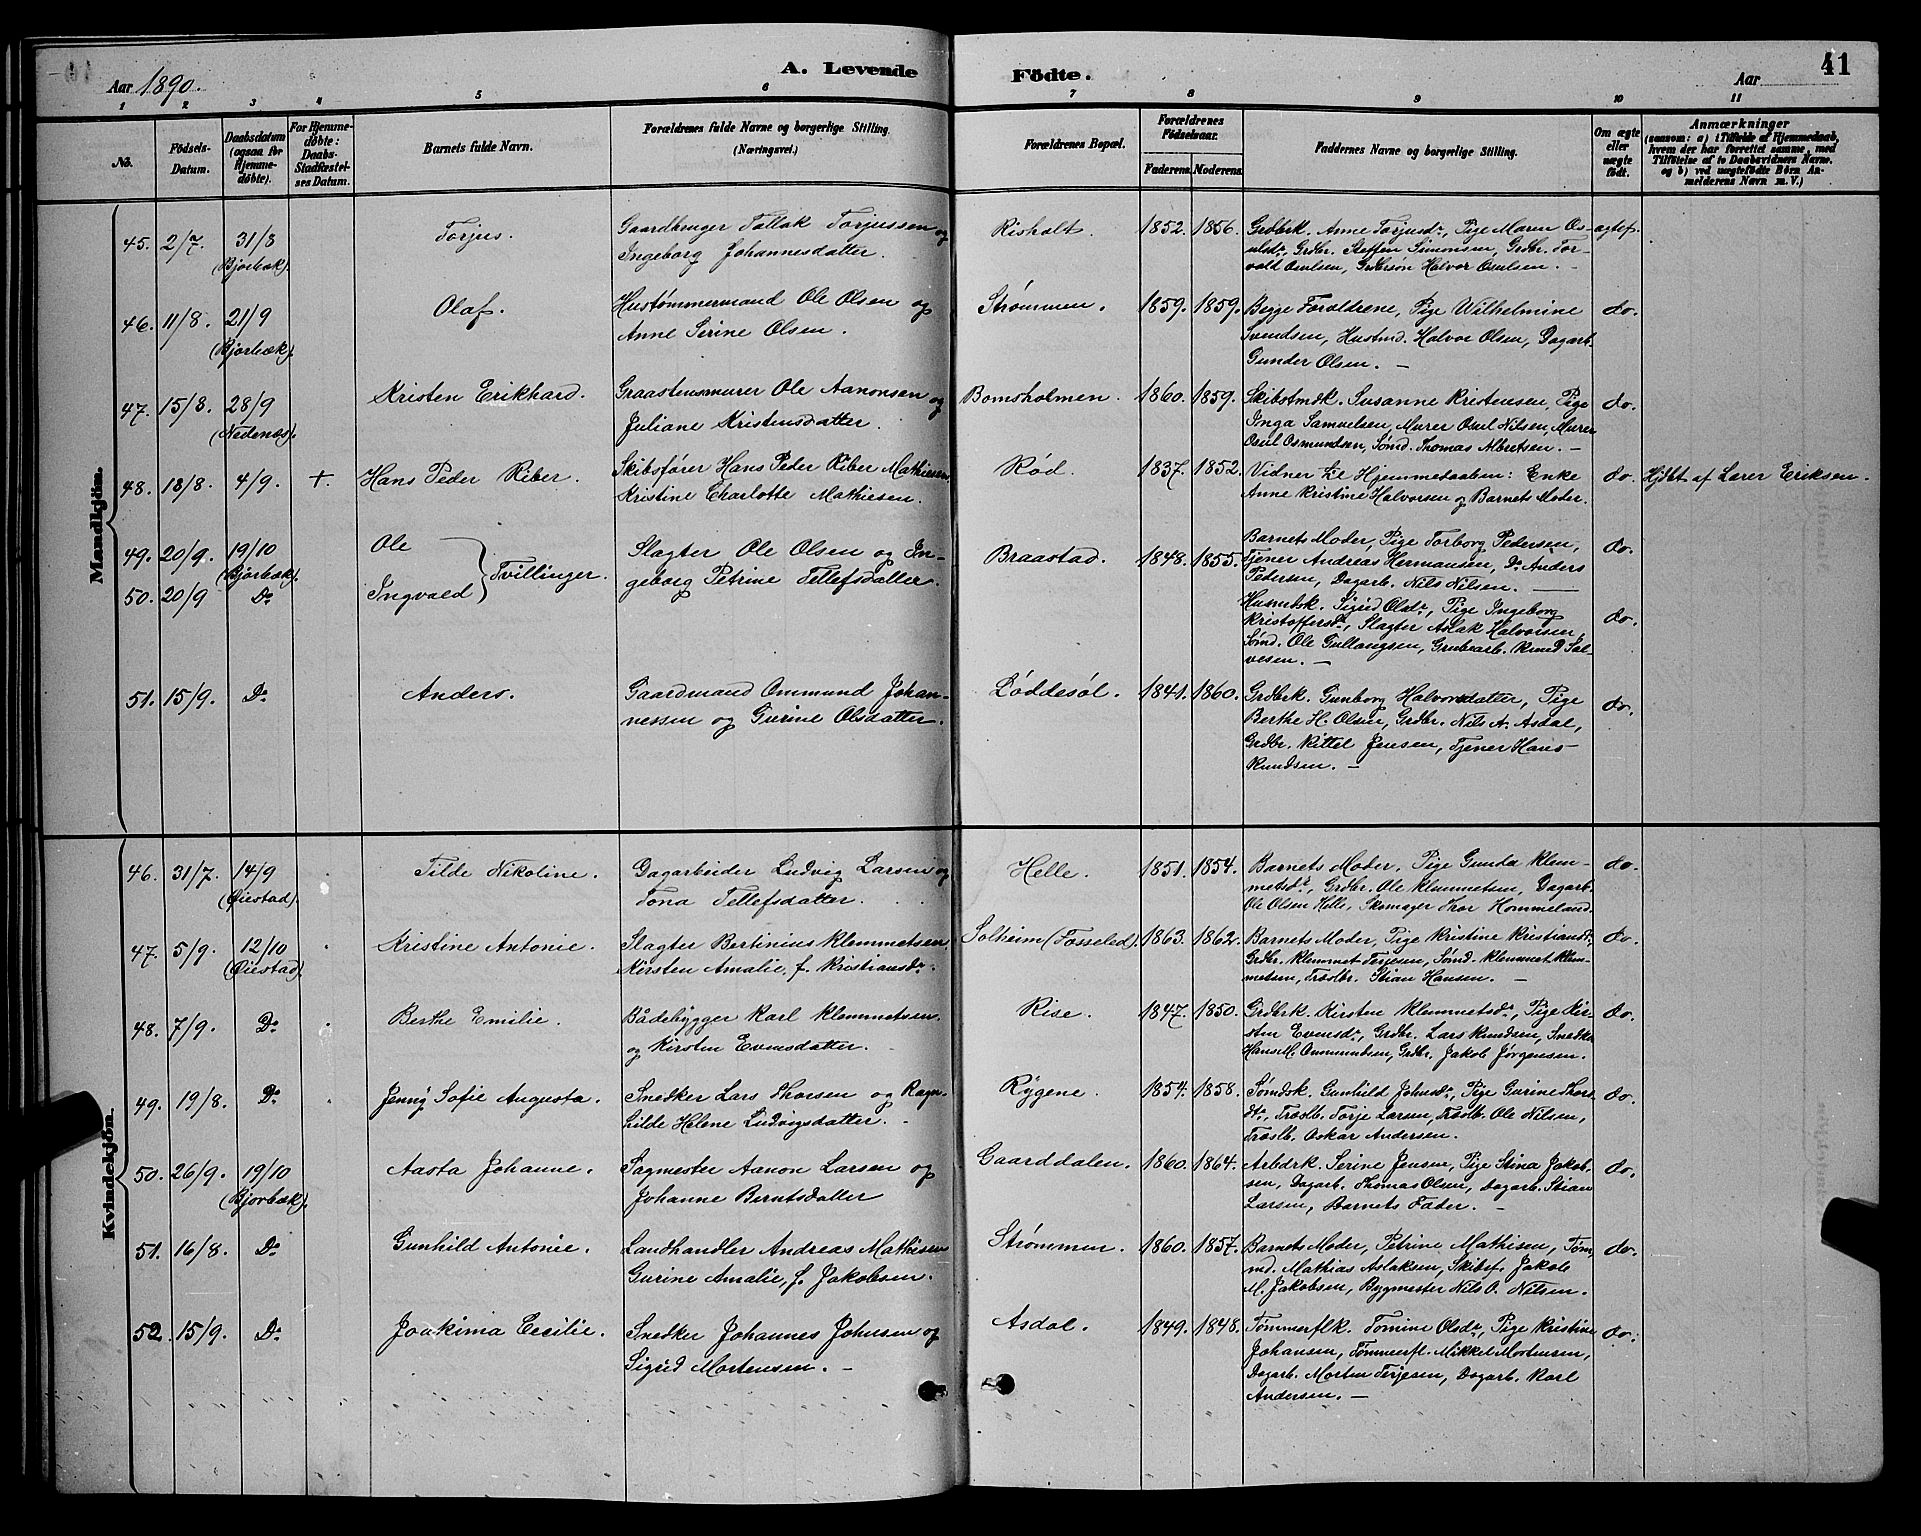 Aar 1890.
A. Levende Födte.
Aar
41
1 2 3 4 5 6 7 8 9 10 11
No.
Födsels-Datum.
Daabsdatum (ogsaa for Hjemme-döbte).
For Hjemme-döbte: Daabs-Stadfæstel-ses Datum.
Barnets fulde Navn.
Forældrenes fulde Navne og borgerlige Stilling. (Næringsvei.)
Forældrenes Bopæl.
Forældrenes Födselsaar.
Faderens. Moderens.
Faddernes Navne og borgerlige Stilling.
Om ægte eller uægte födt.
Anmærkninger
(saasom: a) i Tilfælde af Hjemmedaab, hvem der har forrettet samme, med Tilföielse af to Daabsvidners Navne, og b) ved uægtefödte Börn An-melderens Navn m. V.)
Mandkjön.
45. 2/7. 31/8 (Bjorbæk). Torjus. Gaardbruger Tallak Torjussen og
Ingeborg Johannesdatter.
Risholt. 1852. 1856. Grdbrk. Anne Torjusdr, Pige Maren Os-
ulsdr, Grdbr. Steffen Simonsen, Grdbr. Tor-
vald Osulsen, Grdbrsøn Halvor Osulsen. —
ægtef.
46. 11/8. 21/9 (Bjorbæk). Olaf. Hustømmermand Ole Olsen og
Anne Serine Olsen.
Strømmen. 1859. 1859. Begge Forældrene, Pige Wilhelmine
Svendsen, Hustmd. Halvor Olsen, Dagarb.
Gunder Olsen. —
do.
47. 15/8. 28/9 (Nedenæs). Kristen Erikhard. Graastensmurer Ole Aanonsen og
Juliane Kristensdatter.
Bomsholmen. 1860. 1859. Skibstmdk. Susanne Kristensen, Pige
Inga Samuelsen, Murer Osul Nilsen, Murer
Osul Osmundsen, Sømd. Thomas Albretsen. —
do.
48. 18/8. 4/9. +. Hans Peder Riber. Skibsfører Hans Peder Riber Mathiesen
Kristine Charlotte Mathiesen.
Rød. 1837. 1852. Vidner til Hjemmedaaben: Enke
Anne Kristine Halvorsen og Barnets Moder.
do. Hjdbt af Lærer Eriksen.
49. 20/9. 19/10 (Bjorbæk). Ole
50. 20/9 Do Ingvald } Tvillinger.
Slagter Ole Olsen og In-
geborg Petrine Tellefsdatter.
Braastad. 1848. 1855. Barnets Moder, Pige Torborg Pedersen,
Tjener Andreas Hermansen, Do Anders
Pedersen, Dagarb. Nils Nilsen. —
do.
Husmdsk. Sigrid Olsdr, Pige Ingeborg
Kristoffersdr, Slagter Aslak Halvorsen,
Sømd. Ole Gullangsen, Grubearb. Knud Sal-
vesen. —
do.
51. 15/9. Do Anders. Gaardmand Ommund Johan-
nessen og Gurine Olsdatter.
Løddesøl. 1841. 1860. Grdbrk. Gunborg Halvorsdatter, Pige
Berthe H. Olsen, Grdbr. Nils A. Asdal,
Grdbr. Kittel Jensen, Tjener Hans
Knudsen. —
do.
Kvindekjön.
46. 31/7. 14/9 (Øiestad). Tilde Nikoline. Dagarbeider Ludvig Larsen og
Tona Tellefsdatter.
Helle. 1851. 1854. Barnets Moder, Pige Gunda Klem-
metsdr, Grdbr. Ole Klemmetsen, Dagarb.
Ole Olsen Helle, Skomager Thor Hommeland.
do.
47. 5/9. 12/10 (Øiestad). Kristine Antonie. Slagter Bertinius Klemmetsen
Kirsten Amalie, f. Kristiansdr.
Solheim (Fosseled). 1863. 1862. Barnets Moder, Pige Kristine Kristiansdr,
Grdbr. Klemmet Terjesen, Sømd. Klemmet Klem-
metsen, Træslbr. Stian Hansen. —
do.
48. 7/9. Do Berthe Emilie. Bådebygger Karl Klemmetsen
og Kirsten Evensdatter.
Rise. 1847. 1850. Grdbrk. Kirsten Klemmetsdr, Pige Kir-
sten Evensdr, Grdbr. Lars Knudsen, Snedker
Hans M. Ommundsen, Grdbr. Jakob Jørgensen.
do.
49. 19/8. Do Jenny Sofie Augusta. Snedker Lars Thorsen og Ragn-
hilde Helene Ludvigsdatter.
Rygene. 1854. 1858. Sømdsk. Gunhild Johnsdr, Pige Gurine Thors-
dtr, Træslb. Torje Larsen, Træslb. Ole Nilsen,
Træslb. Oskar Andersen.
do.
50. 26/9. 19/10 (Bjorbæk). Aasta Johanne. Sagmester Aanon Larsen og
Johanne Berntsdatter
Gaarddalen. 1860. 1864. Arbdrk. Serine Jensen, Pige Stina Jakob-
sen, Dagarb. Thomas Olsen, Dagarb. Stian
Larsen, Barnets Fader. —
do.
51. 16/8. Do Gunhild Antonie. Landhandler Andreas Mathisen
Gurine Amalie, f. Jakobsen.
Strømmen. 1860. 1857. Barnets Moder, Petrine Mathisen, Tøm-
md. Mathias Aslaksen, Skibsf. Jakob
M. Jakobsen, Bygmester Nils O. Nilsen.
do.
52. 15/9. Do Joakima Cecilie. Snedker Johannes Johnsen og
Sigrid Mortensen. —
Asdal. 1849. 1848. Tømmerflk. Tomine Olsdr, Pige Kristine
Johansen, Tømmerfl. Mikkel Mortensen,
Dagarb. Morten Terjesen, Dagarb. Karl
Andersen. —
do.